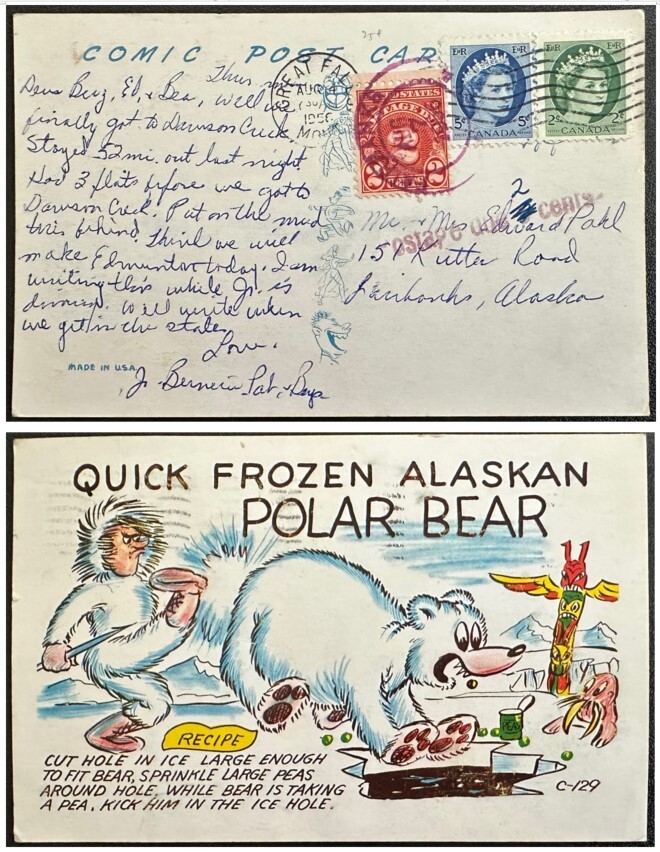 COMIC POST CAR
Thurs
Dear Benj, Ed, & Bea, Well we
finally got to Dawson Creek
Stayed 52 mi. out last night
Had 3 flats before we got to
Dawson Creek. Put on the mud
tires behind. Think we will
make Edmunton today. I am
writing this while Jr. is
driving. Will write when
we get in the states
Love.
Jr. Bernein Pat & Boys
MADE IN U.S.A.
GREAT FAL
AUG
1956
MON
STATES
TAGE DUE
2 CENTS 2
E II R E II R
5¢ CANADA 5¢
E II R E II R
2¢ CANADA 2¢
2
postage due cents
Mr. & Mrs Edward Pahl
15 Kutter Road
Fairbanks, Alaska
QUICK FROZEN ALASKAN
POLAR BEAR
PEAS
RECIPE
CUT HOLE IN ICE LARGE ENOUGH
TO FIT BEAR, SPRINKLE LARGE PEAS
AROUND HOLE. WHILE BEAR IS TAKING
A PEA, KICK HIM IN THE ICE HOLE.
C-129